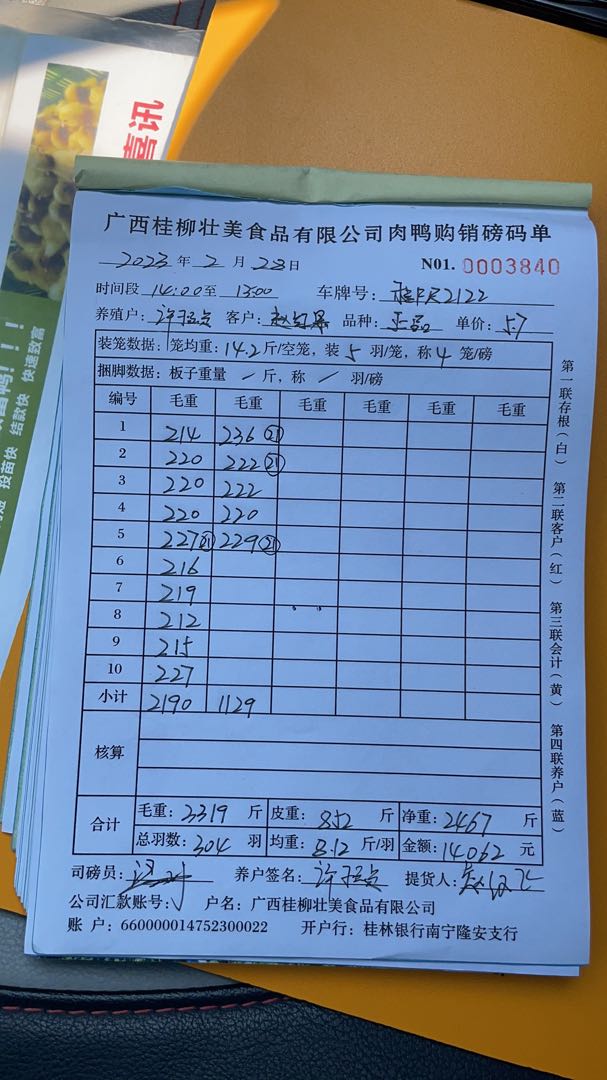 喜讯
快速致富
结款快
投苗快
广西桂柳壮美食品有限公司肉鸭购销磅码单
2023 年 2 月 28 日 N01. 0003840
时间段 14:00 至 15:00 车牌号: 2122
养殖户: 许 客户: 赵 品种: 王品 单价: 5.7
装笼数据: 笼均重: 14.2 斤/空笼, 装 5 羽/笼, 称 4 笼/磅
捆脚数据: 板子重量 / 斤, 称 / 羽/磅
编号 毛重 毛重 毛重 毛重 毛重 毛重
1 214 236 ㉑
2 220 222 ㉑
3 220 222
4 220 220
5 227 ㉑ 229 ㉑
6 216
7 219
8 212
9 215
10 227
小计 2190 1129
核算
合计 毛重: 3319 斤 皮重: 852 斤 净重: 2467 斤
总羽数: 304 羽 均重: 8.12 斤/羽 金额: 14062 元
司磅员: 养户签名: 许 提货人:
公司汇款账号: 户名: 广西桂柳壮美食品有限公司
账 户: 660000014752300022 开户行: 桂林银行南宁隆安支行
第一联存根(白)
第二联客户(红)
第三联会计(黄)
第四联养户(蓝)